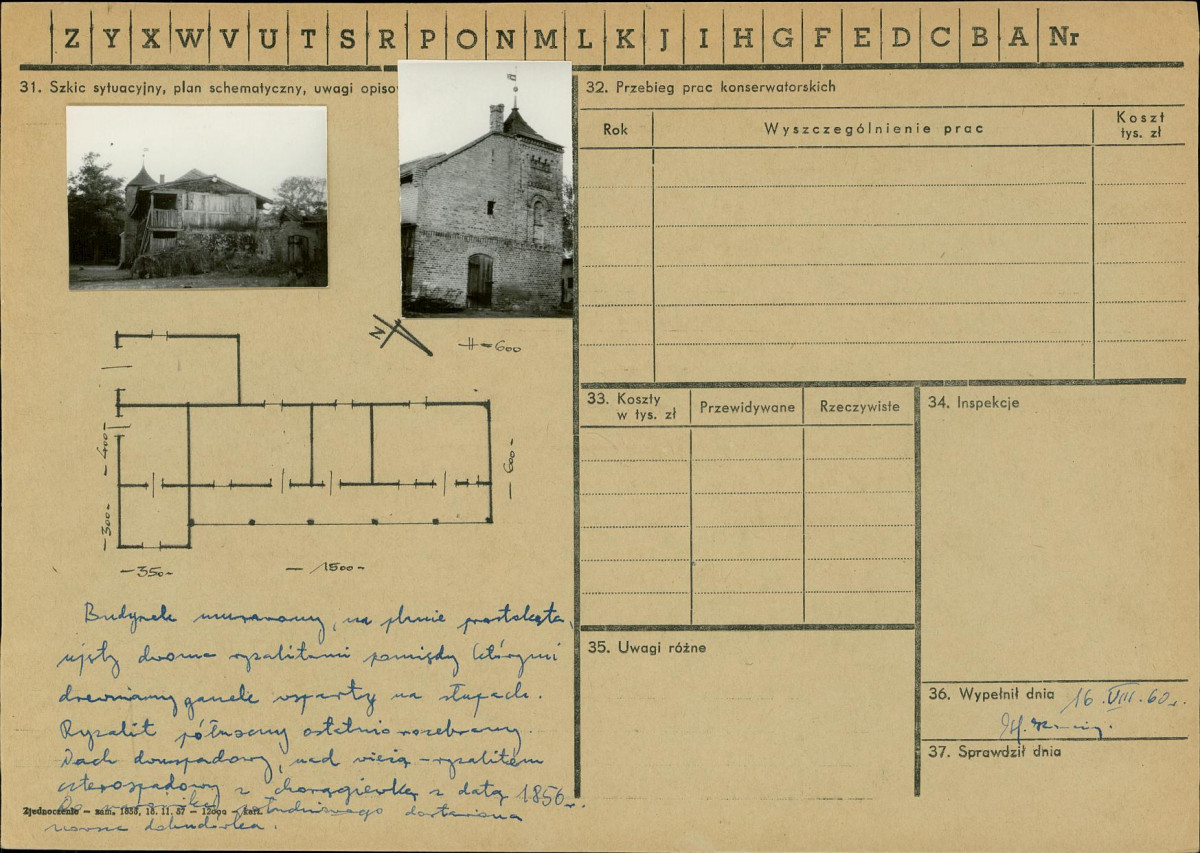 Z Y X W V U T S R P O N M L K J I H G F E D C B A Nr
31. Szkic sytuacyjny, plan schematyczny, uwagi opiso
N
H-600
-400-
-300-
-600-
-350-
-1500-
Budynek murowany, na planie prostokąta,
ujęty dwoma ryzalitami pomiędzy którymi
drewniany ganek wsparty na słupach.
Ryzalit północny ostatnio rozebrany.
Dach dwuspadowy, nad wieżą-ryzalitem
czterospadowy z chorągiewką z datą 1856r.
południowego dostawiona
nowsza dobudówka.
Zjednoczenie – zam. 1858, 18. 11. 57 – 12000 – kart.
32. Przebieg prac konserwatorskich
Rok
Wyszczególnienie prac
Koszt
tys. zł
33. Koszty
w tys. zł
Przewidywane
Rzeczywiste
34. Inspekcje
35. Uwagi różne
36. Wypełnił dnia 16.VIII.60r.
37. Sprawdził dnia